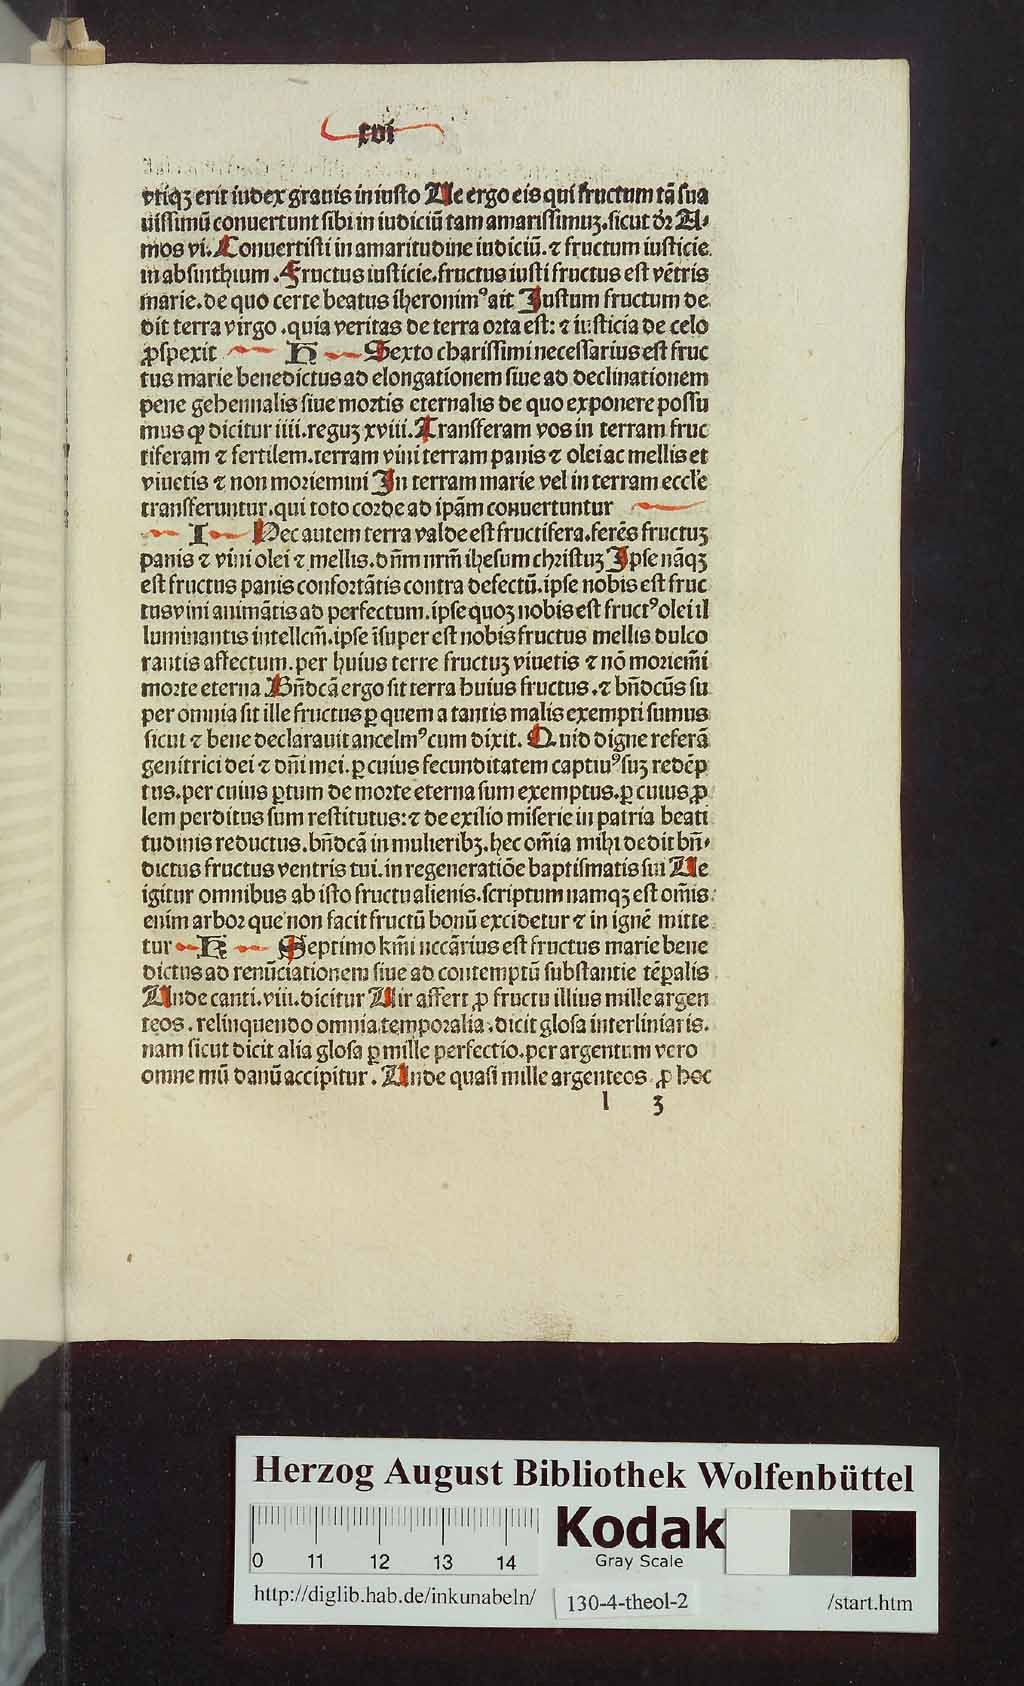 xvi
vtiqꝫ erit iudex grauis in iusto Ue ergo eis qui fructum tā sua
uissimū conuertunt sibi in iudiciū tam amarissimuꝫ. sicut dꝛ A⸗
mos vi. Conuertisti in amaritudine iudiciū. ⁊ fructum iusticie
in absinthium. Fructus iusticie. fructus iusti fructus est vētris
marie. de quo certe beatus iheronimꝰ ait Justum fructum de
dit terra virgo. quia veritas de terra orta est: ⁊ iusticia de celo
ꝓspexit H Sexto charissimi necessarius est fruc
tus marie benedictus ad elongationem siue ad declinationem
pene gehennalis siue mortis eternalis de quo exponere possu
mus ꝙ dicitur iiii. reguꝫ xviii. Transferam vos in terram fruc
tiferam ⁊ fertilem. terram vini terram panis ⁊ olei ac mellis et
viuetis ⁊ non moriemini In terram marie vel in terram eccľe
transferuntur. qui toto corde ad ipām conuertuntur
I Hec autem terra valde est fructifera. ferēs fructuꝫ
panis ⁊ vini olei ⁊ mellis. dn̄m nrm̄ ihesum christuꝫ Ipse nāqꝫ
est fructus panis confortātis contra defectū. ipse nobis est fruc
tus vini animātis ad perfectum. ipse quoꝫ nobis est fructꝰ olei il
luminantis intellcm̄. ipse īsuper est nobis fructus mellis dulco
rantis affectum. per huius terre fructuꝫ viuetis ⁊ nō moriem̄i
morte eterna Bn̄dcā ergo sit terra huius fructus. ⁊ bn̄dcūs su
per omnia sit ille fructus ꝑ quem a tantis malis exempti sumus
sicut ⁊ bene declarauit ancelmꝰ cum dixit. Quid digne referā
genitrici dei ⁊ dn̄i mei. ꝑ cuius fecunditatem captiuꝰ suꝫ redēp
tus. per cuius ꝑtum de morte eterna sum exemptus. ꝑ cuius ꝓ
lem perditus sum restitutus: ⁊ de exilio miserie in patria beati
tudinis reductus. bn̄dcā in mulieribꝫ. hec om̄ia mihi dedit bn̄⸗
dictus fructus ventris tui. in regeneratiōe baptismatis sui Ue
igitur omnibus ab isto fructu alienis. scriptum namqꝫ est om̄is
enim arbor que non facit fructū bonū excidetur ⁊ in ignē mitte
tur K Septimo km̄i nccārius est fructus marie bene
dictus ad renūciationem siue ad contemptū substantie tēꝑalis
Unde canti. viii. dicitur Uir affert ꝓ fructu illius mille argen
teos. relinquendo omnia temporalia. dicit glosa interliniaris.
nam sicut dicit alia glosa ꝑ mille perfectio. per argentum vero
omne mūdanū accipitur. Unde quasi mille argenteos ꝓ hoc
l 3
Herzog August Bibliothek Wolfenbüttel
Kodak
Gray Scale
0 11 12 13 14
http://diglib.hab.de/inkunabeln/ 130-4-theol-2 /start.htm